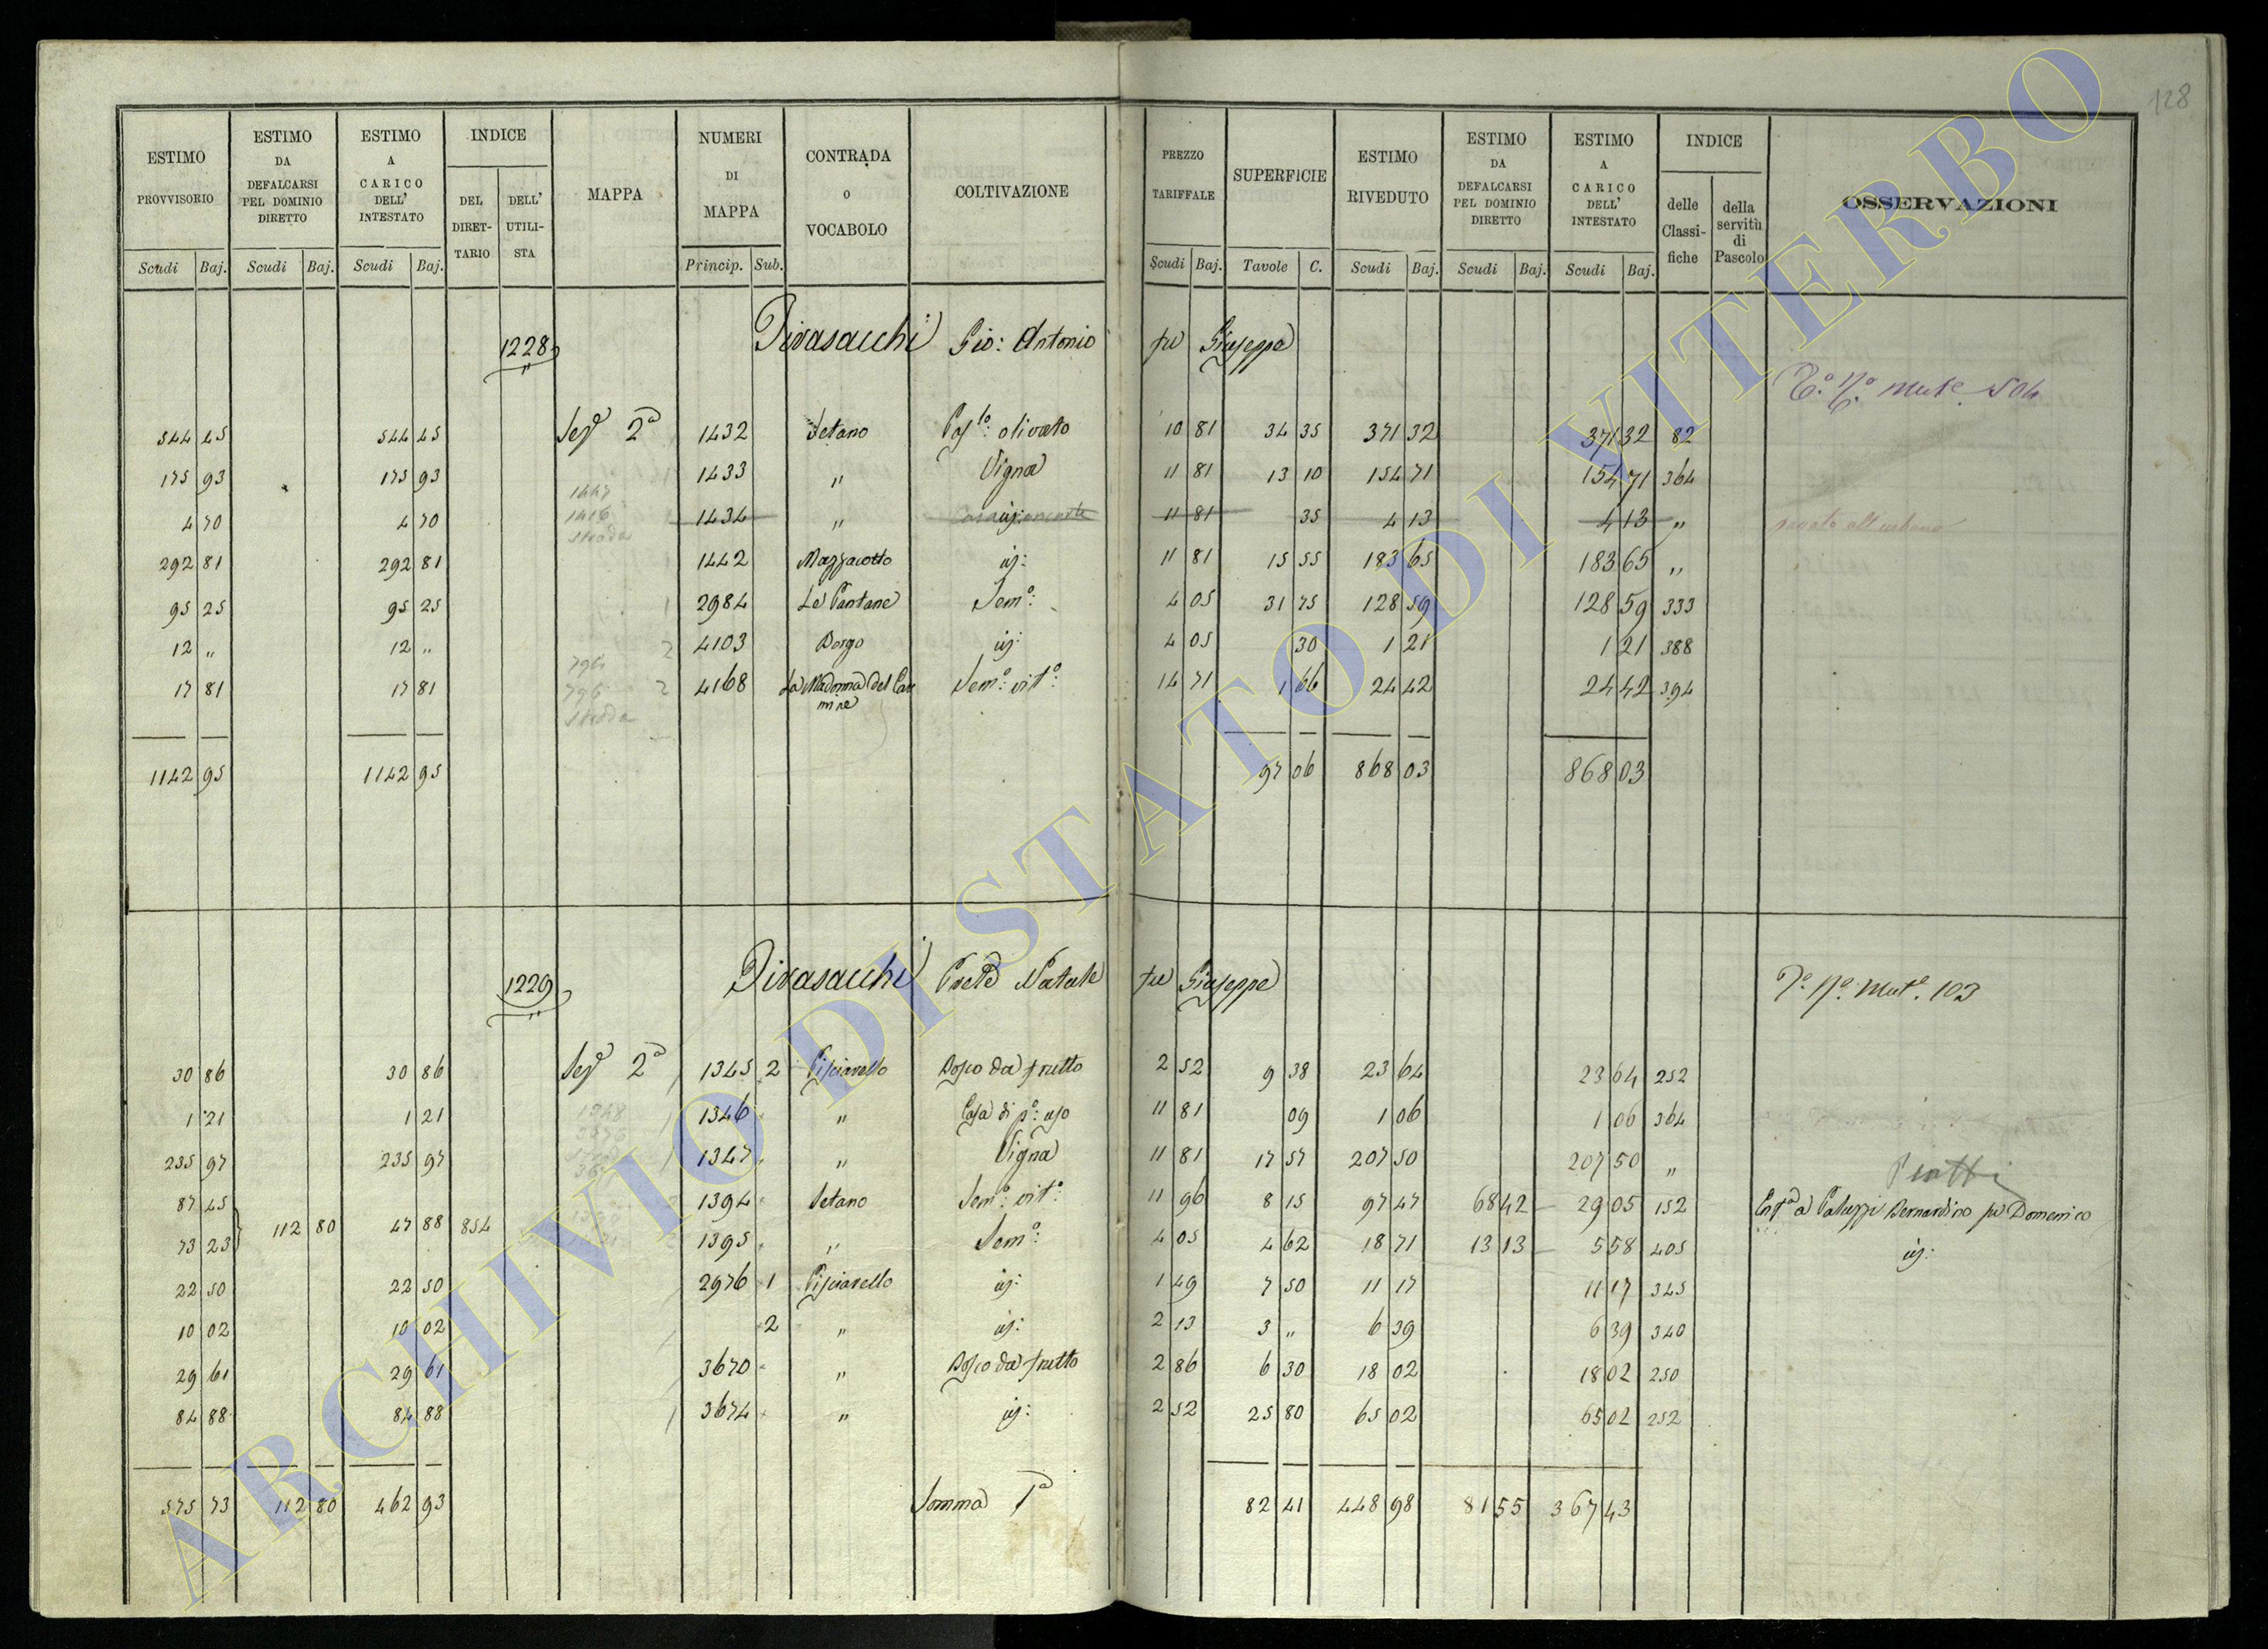 128
ESTIMO PROVVISORIO | ESTIMO DA DEFALCARSI PEL DOMINIO DIRETTO | ESTIMO A CARICO DELL' INTESTATO | INDICE DEL DIRET-TARIO | DELL' UTILI-STA | MAPPA | NUMERI DI MAPPA | CONTRADA o VOCABOLO | COLTIVAZIONE | PREZZO TARIFFALE | SUPERFICIE | ESTIMO RIVEDUTO | ESTIMO DA DEFALCARSI PEL DOMINIO DIRETTO | ESTIMO A CARICO DELL' INTESTATO | INDICE delle Classi-fiche | della servitù di Pascolo | OSSERVAZIONI
Scudi Baj. Scudi Baj. Scudi Baj. Princip. Sub. Scudi Baj. Tavole C. Scudi Baj. Scudi Baj. Scudi Baj.
1228 Pivasacchi Gio: Antonio fu Giuseppe
To No Mute 504
544 45 544 45 Sez 2a 1432 Setano Pas.lo: olivato 10 81 34 35 371 32 371 32 82
175 93 175 93 1433 " Vigna 11 81 13 10 154 71 154 71 364
4 70 4 70 1434 " 11 81 35 4 13 4 13 "
1416
strada
292 81 292 81 1442 Mazzacotto id: 11 81 15 55 183 65 183 65 "
95 25 95 25 2984 Le Pantane Sem.o: 4 05 31 75 128 59 128 59 333
12 " 12 " 2 4103 Borgo id: 4 05 30 1 21 1 21 388
17 81 17 81 796 2 4168 La Madonna del Carmine Sem.o: vit.o: 14 71 1 66 24 42 24 42 394
strada
1142 95 1142 95 97 06 868 03 868 03
1229 Pivasacchi Prete Natale fu Giuseppe
To No Mute. 103
30 86 30 86 Sez 2a 1345 2 Pisciarello Bosco da frutto 2 52 9 38 23 64 23 64 252
1 21 1 21 1346 " Casa di po: uso 11 81 09 1 06 1 06 364
235 97 235 97 1347 " Vigna 11 81 17 57 207 50 207 50 "
87 45 1394 Setano Sem.o: vit.o: 11 96 8 15 97 47 68 42 29 05 152 Enfa a Paluzzi Bernardino fu Domenico
112 80 47 88 854
73 23 1395 " Sem.o: 4 05 4 62 18 71 13 13 5 58 405 id:
22 50 22 50 2976 1 Pisciarello id: 1 49 7 50 11 17 11 17 345
10 02 10 02 2 " id: 2 13 3 " 6 39 6 39 340
29 61 29 61 3670 " Bosco da frutto 2 86 6 30 18 02 18 02 250
84 88 84 88 3674 " id: 2 52 25 80 65 02 65 02 252
575 73 112 80 462 93 Somma 82 41 448 98 81 55 367 43
ARCHIVIO DI STATO DI VITERBO